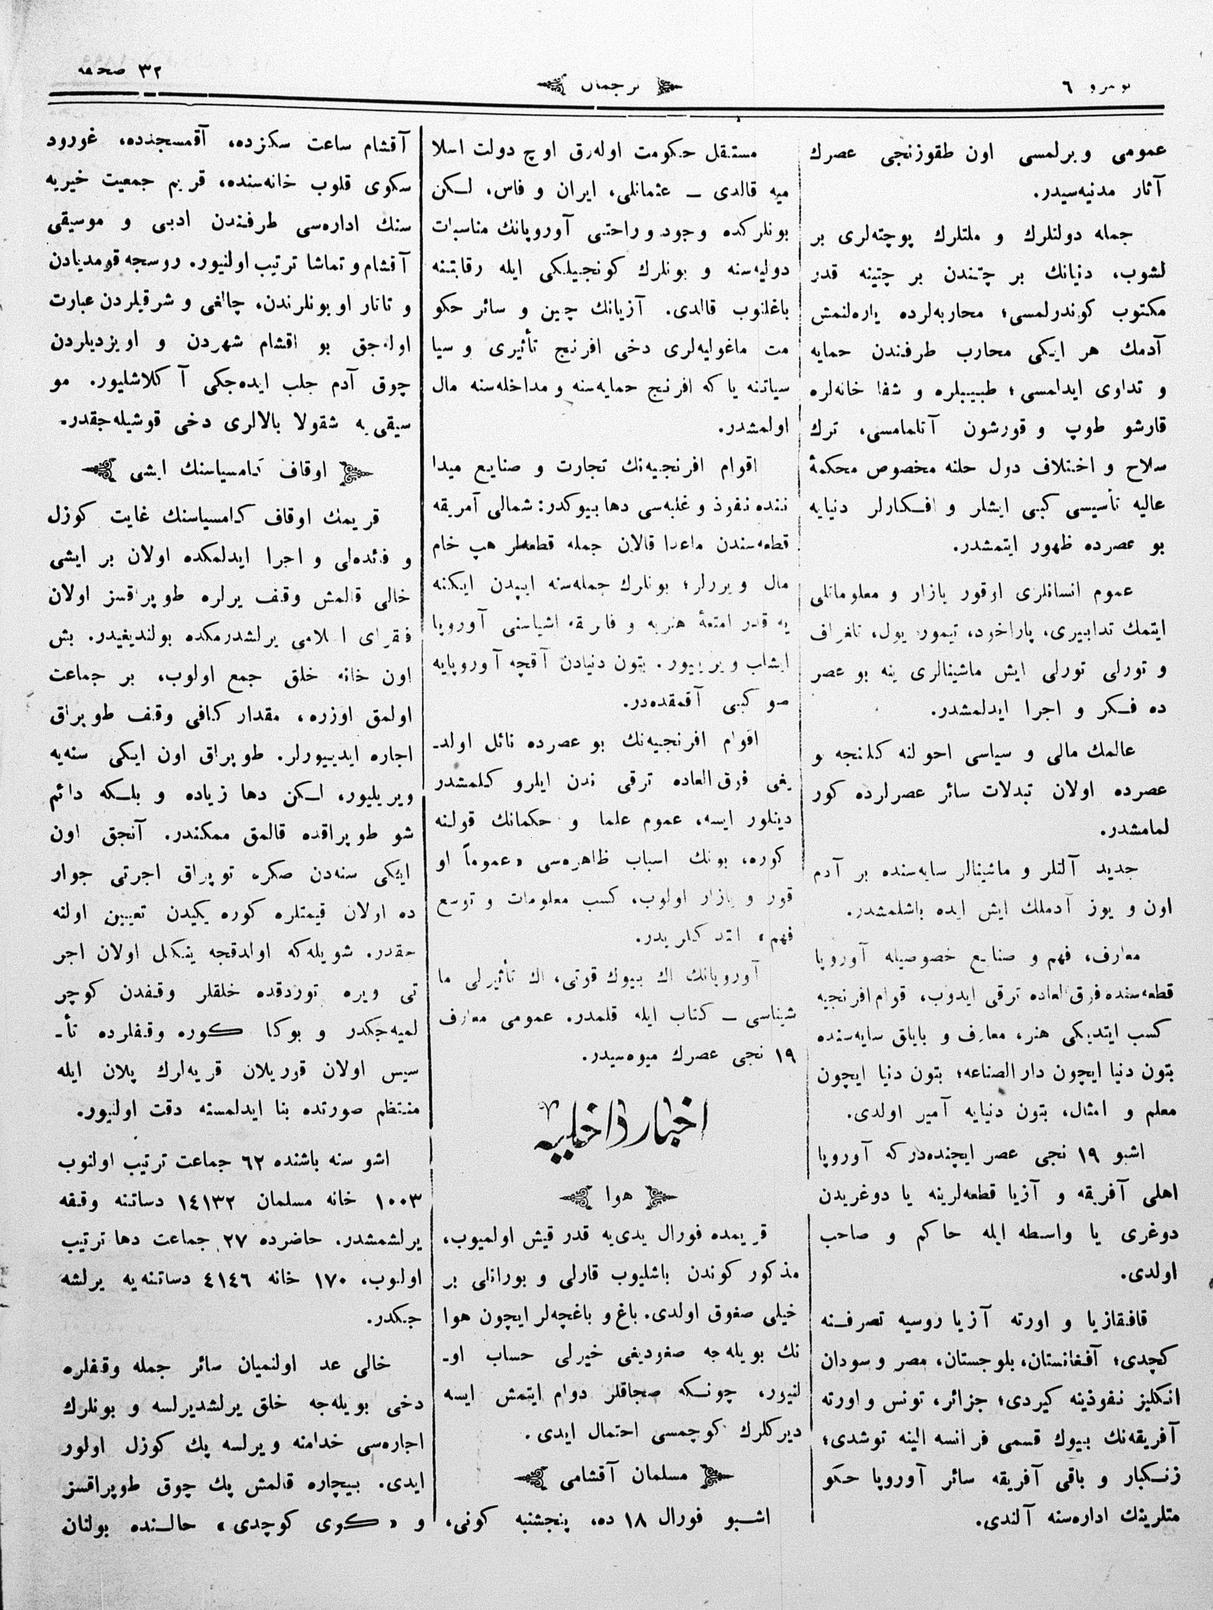 نومرو ٦
ترجمان
٣٢ صحیفه
عمومی ویرلمسی اون طقوزنجی عصرك
آثار مدنیه‌سیدر.
جمله دولتلرك و ملتلرك پوچته‌لری بر
لشوب، دنیانك بر چتندن بر چتینه قدر
مكتوب كوندرلمسی؛ محاربه‌لرده یاره‌لنمش
آدمك هر ایكی محارب طرفندن حمایه
و تداوی ایدلمسی؛ طبیبلره و شفا خانه‌لره
قارشو طوپ و قورشون آتلمامسی، ترك
سلاح و اختلاف دول حلنه مخصوص محكمهٔ
عالیه تأسیسی كبی ایشلر و افكارلر دنیایه
بو عصرده ظهور ایتمشدر.
عموم انسانلری اوقور یازار و معلوماتلی
ایتمك تدابیری، پاراخود، تیمور یول، تلغراف
و تورلی تورلی ایش ماشینالری ینه بو عصر
ده فكر و اجرا ایدلمشدر.
عالمك مالی و سیاسی احوالنه كلنجه بو
عصرده اولان تبدلات سائر عصرلرده كور
لمامشدر.
جدید آلتلر و ماشینالر سایه‌سنده بر آدم
اون و یوز آدملك ایش ایده باشلمشدر.
معارف، فهم و صنایع خصوصیله آوروپا
قطعه‌سنده فوق العاده ترقی ایدوب، قوام افرنجیه
كسب ایتدیكی هنر، معارف و بایلق سایه‌سنده
بتون دنیا ایچون دار الصناعه؛ بتون دنیا ایچون
معلم و امثال، بتون دنیایه آمیر اولدی.
اشبو ١٩ نجی عصر ایچنده‌در كه آوروپا
اهلی آفریقه و آزیا قطعه‌لرینه یا دوغریدن
دوغری یا واسطه ایله حاكم و صاحب
اولدی.
قافقازیا و اورته آزیا روسیه تصرفنه
كچدی؛ آفغانستان، بلوجستان، مصر و سودان
انكلیز نفوذینه كیردی؛ جزائر، تونس و اورته
آفریقه‌نك بیوك قسمی فرانسه الینه توشدی؛
زنكبار و باقی آفریقه سائر آوروپا حكو
متلرینك اداره‌سنه آلندی.
مستقل حكومت اوله‌رق اوچ دولت اسلا
میه قالدی ــ عثمانلی، ایران و فاس، لكن
بونلركده وجود و راحتی آوروپانك مناسبات
دولیه‌سنه و بونلرك كونجیلیكی ایله رقابتنه
باغلنوب قالدی. آزیانك چین و سائر حكو
مت ماغولیه‌لری دخی افرنج تأثیری و سیا
سیاتنه یا كه افرنج حمایه‌سنه و مداخله‌سنه مال
اولمشدر.
اقوام افرنجیه‌نك تجارت و صنایع میدا
ننده نفوذ و غلبه‌سی دها بیوكدر: شمالی آمریقه
قطعه‌سندن ماعدا قالان جمله قطعه‌لر هپ خام
مال ویررلر؛ بونلرك جمله‌سنه ایپدن ایكنه
یه قدر امتعهٔ هنریه و فابریقه اشیاسنی آوروپا
ایشلب ویریییور. بتون دنیادن آقچه آوروپایه
صو كبی آقمقده‌در.
اقوام افرنجیه‌نك بو عصرده نائل اولد
یغی فوق العاده ترقی ندن ایلرو كلمشدر
دینلور ایسه، عموم علما و حكمانك قولنه
كوره، بونك اسباب ظاهره‌سی «عموماً او
قور و یازار اولوب، كسب معلومات و توسع
فهم» ایتدكلریدر.
آوروپانك اك بیوك قوتی، اك تأثیرلی ما
شیناسی ــ كتاب ایله قلمدر. عمومی معارف
١٩ نجی عصرك میوه‌سیدر.
اخبار داخلیه
هوا
قریمده فورال یدی‌یه قدر قیش اولمیوب،
مذكور كوندن باشلیوب قارلی و بورانلی بر
خیلی صغوق اولدی. باغ و باغچه‌لر ایچون هوا
نك بویله‌جه صغودیغی خیرلی حساب او
لنیور، چونكه صجاقلر دوام ایتمش ایسه
دیركلرك كوچمسی احتمال ایدی.
مسلمان آقشامی
اشبو فورال ١٨ ده، پنجشنبه كونی،
آقشام ساعت سكزده، آقمسجدده، غورود
سكوی قلوب خانه‌سنده، قریم جمعیت خیریه
سنك اداره‌سی طرفندن ادبی و موسیقی
آقشام و تماشا ترتیب اولنیور. روسجه قومدیادن
و تاتار اویونلرندن، چالغی و شرقیلردن عبارت
اوله‌جق بو اقشام شهردن و اویزدیلردن
چوق آدم جلب ایده‌جكی آكلاشلیور. مو
سیقی‌یه شقولا بالالری دخی قوشیله‌جقدر.
اوقاف كامسیاسنك ایشی
قریمك اوقاف كامسیاسنك غایت كوزل
و فائده‌لی و اجرا ایدلمكده اولان بر ایشی
خالی قالمش وقف یرلره طوپراقسز اولان
فقرای اسلامی یرلشدرمكده بولندیغیدر. بش
اون خانه خلق جمع اولوب، بر جماعت
اولمق اوزره، مقدار كافی وقف طوپراق
اجاره ایدییورلر. طوپراق اون ایكی سنه‌یه
ویریلیور، لكن دها زیاده و بلكه دائم
شو طوپراقده قالمق ممكندر. آنجق اون
ایكی سنه‌دن صكره توپراق اجرتی جوار
ده اولان قیمتلره كوره یكیدن تعیین اولنه
جقدر. شویله‌كه اولدقجه ینكل اولان اجر
تی ویره توردقده خلقلر وقفدن كوچر
لمیه‌جكدر و بوكا كوره وقفلرده تأ
سیس اولان قوریلان قریه‌لرك پلان ایله
منتظم صورتده بنا ایدلمسنه دقت اولنیور.
اشو سنه باشنده ٦٢ جماعت ترتیب اولنوب
١٠٠٣ خانه مسلمان ١٤١٣٢ دساتنه وقفه
یرلشمشدر. حاضرده ٢٧ جماعت دها ترتیب
اولنوب، ١٧٠ خانه ٤١٤٦ دساتنه‌یه یرلشه
جكدر.
خالی عد اولنمیان سائر جمله وقفلره
دخی بویله‌جه خلق یرلشدیرلسه و بونلرك
اجاره‌سی خدامنه ویرلسه پك كوزل اولور
ایدی. بیچاره قالمش پك چوق طوپراقسز
و «كوی كوچدی» حالنده بولنان